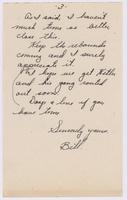 -2-
As I said I haven't
much time so better
close this.
Keep the rebounds
coming and I surely
appreciate it.
Let hope we get Hitler
and his gang routed
out soon.
Drop a line if you
have time.
Sincerely yours,
Bill